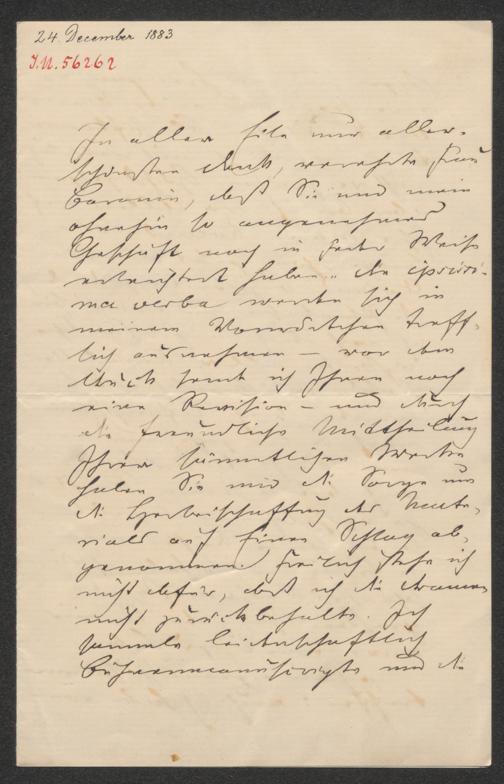 24 December 1883
I.N. 56262
In aller Eile nur aller-
schönsten Dank, verehrte Frau
Baronin, daß Sie mir mein
ohnehin so angenehmes
Geschäft noch in jeder Weise
erleichtert haben. Die ipsissi-
ma verba werden sich in
meinem Vorwörtchen treff-
lich ausnehmen – vor dem
Druck sende ich Ihnen noch
eine Revision – und durch
die freundliche Mittheilung
Ihrer sämmtlichen Werke
haben Sie mir die Sorge um
die Herbeischaffung des Mate-
rials auf Einen Schlag ab-
genommen. Freilich stehe ich
nicht dafür, daß ich die Dramen
nicht zurückbehalte. Ich
sammle leidenschaftlich
Bühnenmanuscripte und die